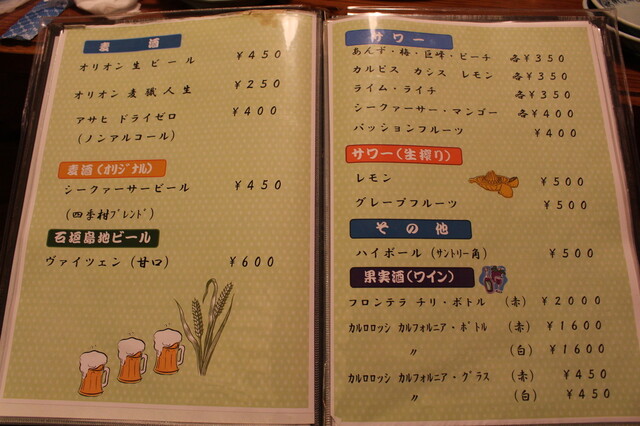 麦酒
オリオン 生 ビール ¥450
オリオン 麦 職 人 生 ¥250
アサヒ ドライゼロ ¥400
(ノンアルコール)
麦酒(オリジナル)
シークァーサービール ¥450
(四季村ブレンド)
石垣島地ビール
ヴァイツェン(甘口) ¥600
サワー
あんず・梅・巨峰・ピーチ 各¥350
カルピス カシス レモン 各¥350
ライム・ライチ 各¥350
シークァーサー・マンゴー 各¥400
パッションフルーツ ¥400
サワー(生搾り)
レモン ¥500
グレープフルーツ ¥500
その他
ハイボール(サントリー角) ¥500
果実酒(ワイン)
フロンテラ チリ・ボトル (赤) ¥2000
カルロロッシ カルフォルニア・ボトル (赤) ¥1600
〃 (白) ¥1600
カルロロッシ カルフォルニア・グラス (赤) ¥450
〃 (白) ¥450